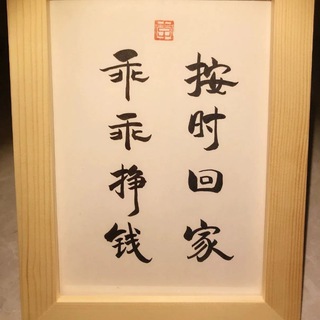 按时回家
乖乖挣钱